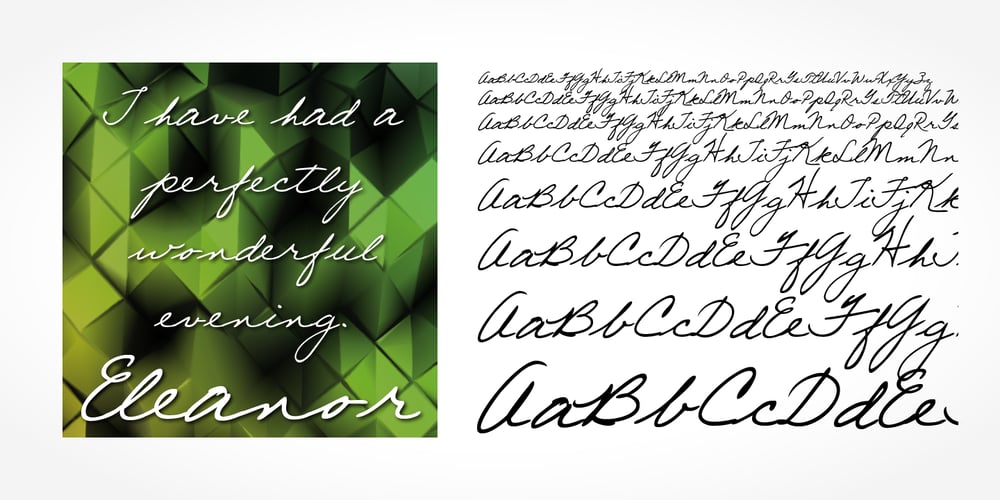 I have had a
perfectly
wonderful
evening.
Eleanor
AaBbCcDdEeFfGgHhIiJjKkLlMmNnOoPpQqRrSsTtUuVvWwXxYyZz
AaBbCcDdEeFfGgHhIiJjKkLlMmNnOoPpQqRrSsTtUuVvW
AaBbCcDdEeFfGgHhIiJjKkLlMmNnOoPpQqRrSs
AaBbCcDdEeFfGgHhIiJjKkLlMmNn
AaBbCcDdEeFfGgHhIiJjKk
AaBbCcDdEeFfGgHh
AaBbCcDdEeFfGg
AaBbCcDdEe